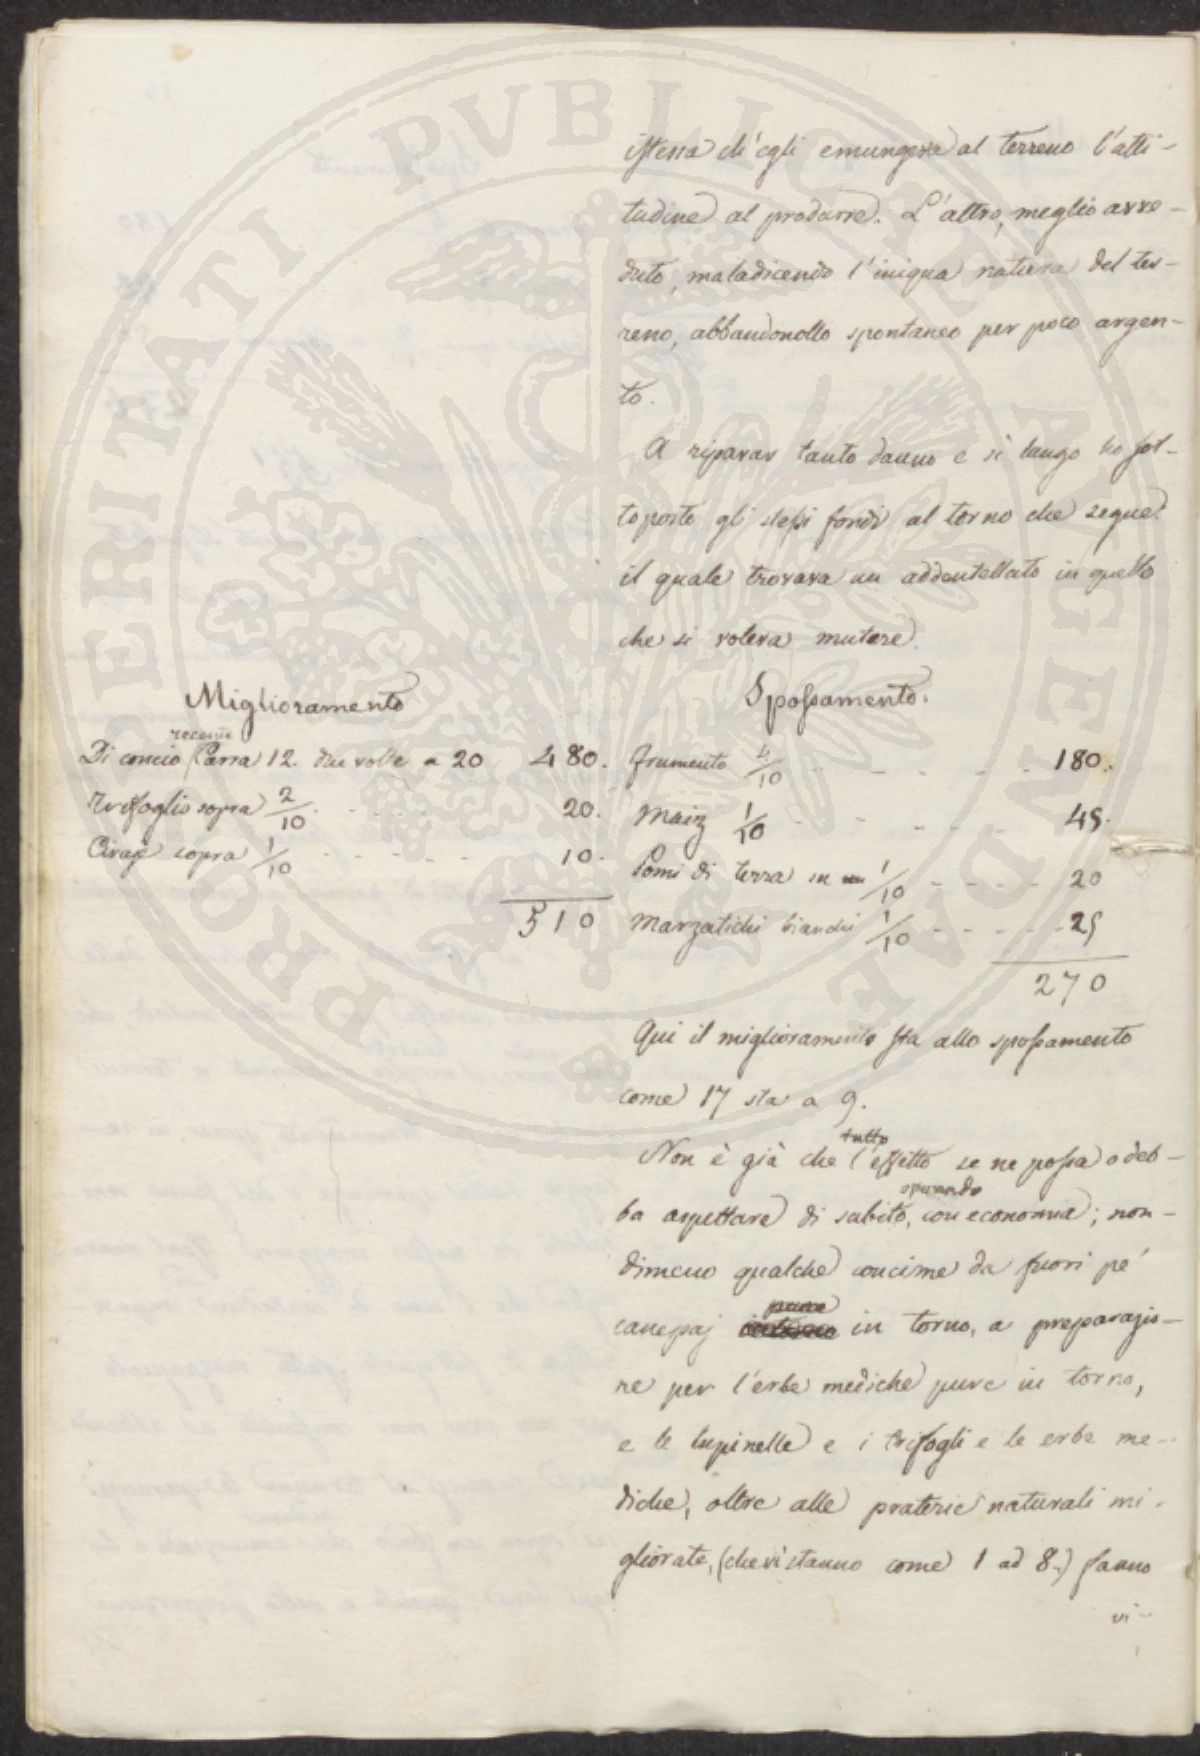 istessa ch'egli emungeva al terreno l'atti-
tudine al produrre. L'altro, meglio avve-
duto, maladicendo l'iniqua natura del ter-
reno, abbandonollo spontaneo per poco argen-
to.
A riparar tanto danno e sì lungo ho sot-
toposto gli stessi fondi al torno che segue
il quale trovava un addentellato in quello
che si voleva mutare.
Miglioramento
recente
Di concio Carra 12. due volte a 20 480.
Trifoglio sopra 2/10 20.
sopra 1/10 10.
510
Spossamento.
frumento 4/10 180.
Maiz 1/10 45.
Pomi di terra in 1/10 20
Marzatichi bianchi 1/10 25
270
Qui il miglioramento sta allo spossamento
come 17 sta a 9.
Non è già che tutto l'effetto se ne possa o deb-
ba aspettare di subito, con economia; non-
dimeno qualche concime da fuori pe'
canepaj in torno, a preparazio-
ne per l'erbe mediche pure in torno,
e le lupinelle e i trifogli e le erbe me-
diche, oltre alle praterie naturali mi-
gliorate, (che vi stanno come 1 ad 8.) fanno
vi-
PROSPERITATI PUBLICAE AUGENDAE